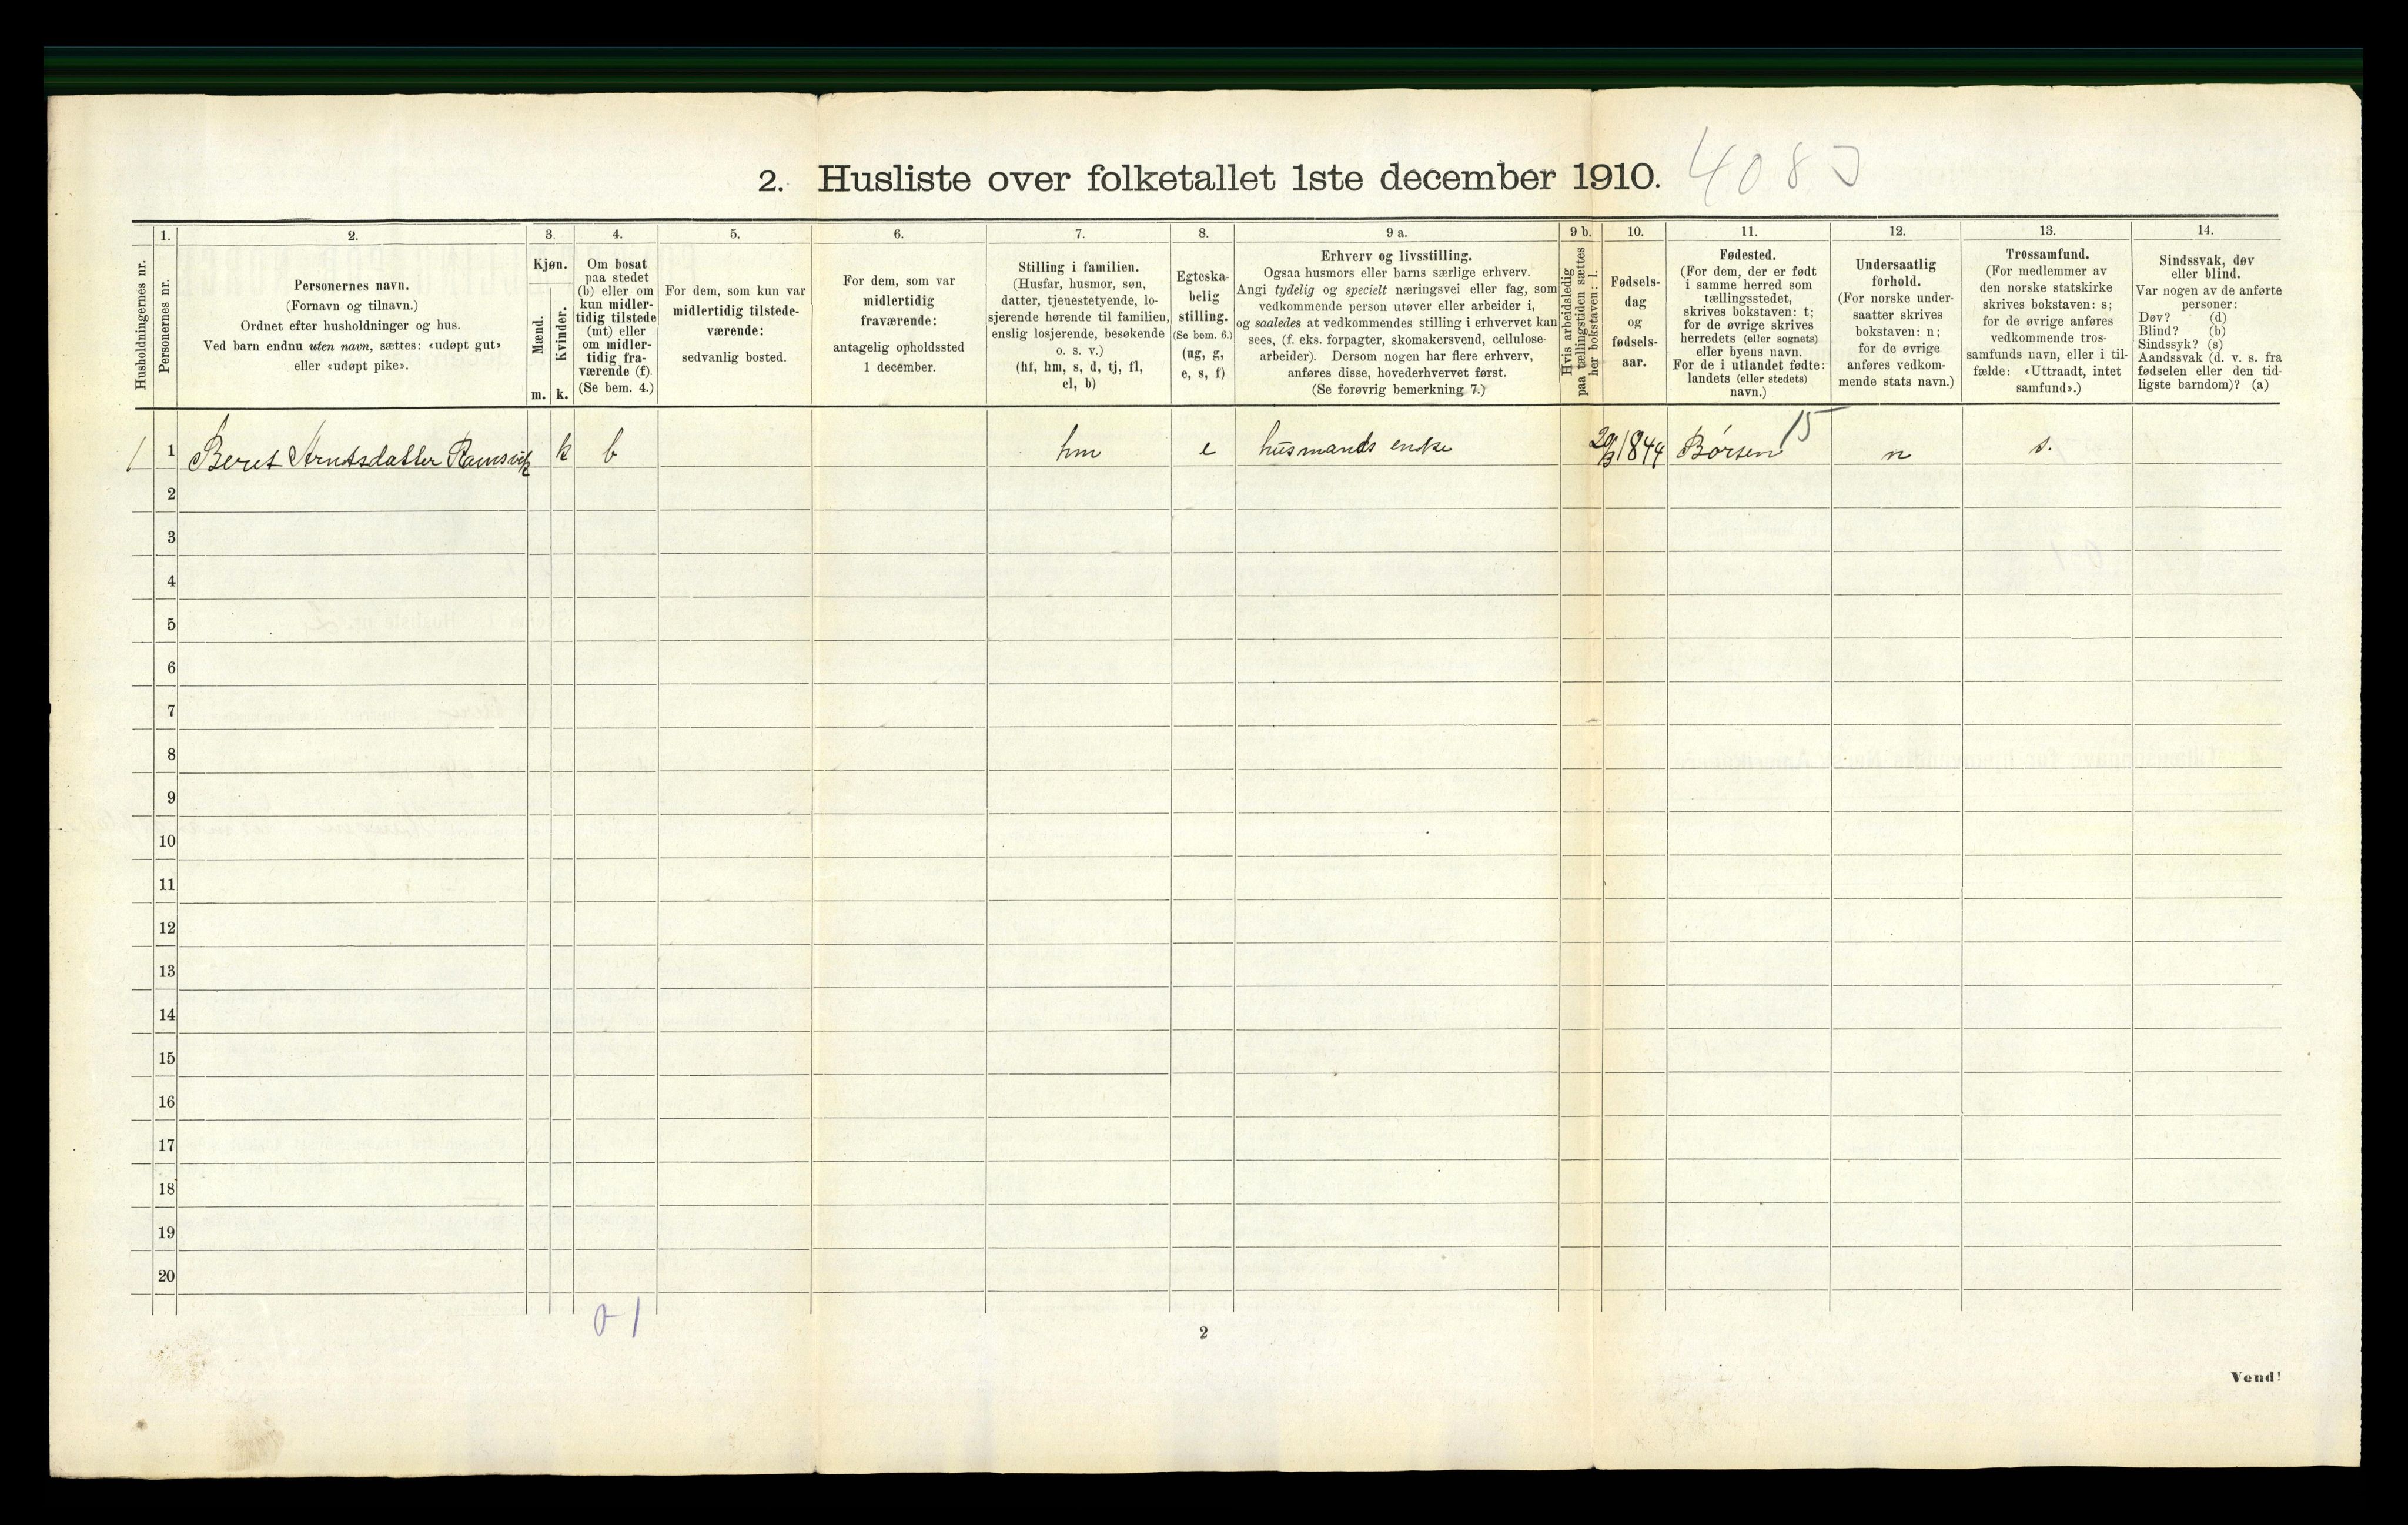 2. Husliste over folketallet 1ste december 1910.
408
Husholdningernes nr.
1.
Personernes nr.
2.
Personernes navn.
(Fornavn og tilnavn.)
Ordnet efter husholdninger og hus.
Ved barn endnu uten navn, sættes: «udøpt gut»
eller «udøpt pike».
3.
Kjøn.
Mænd.
Kvinder.
m.
k.
4.
Om bosat
paa stedet
(b) eller om
kun midler-
tidig tilstede
(mt) eller
om midler-
tidig fra-
værende (f).
(Se bem. 4.)
5.
For dem, som kun var
midlertidig tilstede-
værende:
sedvanlig bosted.
6.
For dem, som var
midlertidig
fraværende:
antagelig opholdssted
1 december.
7.
Stilling i familien.
(Husfar, husmor, søn,
datter, tjenestetyende, lo-
sjerende hørende til familien,
enslig losjerende, besøkende
o. s. v.)
(hf, hm, s, d, tj, fl,
el, b)
8.
Egteska-
belig
stilling.
(Se bem. 6.)
(ug, g,
e, s, f)
9 a.
Erhverv og livsstilling.
Ogsaa husmors eller barns særlige erhverv.
Angi tydelig og specielt næringsvei eller fag, som
vedkommende person utøver eller arbeider i,
og saaledes at vedkommendes stilling i erhvervet kan
sees, (f. eks. forpagter, skomakersvend, cellulose-
arbeider). Dersom nogen har flere erhverv,
anføres disse, hovederhvervet først.
(Se forøvrig bemerkning 7.)
9 b.
Hvis arbeidsledig
paa tællingstiden sættes
her bokstaven: l.
10.
Fødsels-
dag
og
fødsels-
aar.
11.
Fødested.
(For dem, der er født
i samme herred som
tællingsstedet,
skrives bokstaven: t;
for de øvrige skrives
herredets (eller sognets)
eller byens navn.
For de i utlandet fødte:
landets (eller stedets)
navn.)
12.
Undersaatlig
forhold.
(For norske under-
saatter skrives
bokstaven: n;
for de øvrige
anføres vedkom-
mende stats navn.)
13.
Trossamfund.
(For medlemmer av
den norske statskirke
skrives bokstaven: s;
for de øvrige anføres
vedkommende tros-
samfunds navn, eller i til-
fælde: «Uttraadt, intet
samfund».)
14.
Sindssvak, døv
eller blind.
Var nogen av de anførte
personer:
Døv? (d)
Blind? (b)
Sindssyk? (s)
Aandssvak (d. v. s. fra
fødselen eller den tid-
ligste barndom)? (a)
1 1 Beret Arntsdatter Ramsvik k b hm e husmands enke 1844 Børsen 15 n s.
2
3
4
5
6
7
8
9
10
11
12
13
14
15
16
17
18
19
20
0-1
2
Vend!